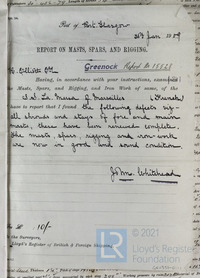 Port of Port Glasgow
31st Jan 18
REPORT ON MASTS, SPARS, AND RIGGING.
Greenock Report No 15523
Having, in accordance with your instructions, examined
Masts, Spars, and Rigging, and Iron Work of same, of the
S.S. La Marsa of Marseilles (French)
beg to report that I found the following defects viz
all shrouds and stays of fore and main
masts, there have been renewed complete,
The masts, spars, rigging and iron work
are now in good and sound condition
Jno. Whitehead
10/-
the Surveyors,
Lloyd's Register of British & Foreign Shipping,
© 2021
Lloyd's Register
Foundation